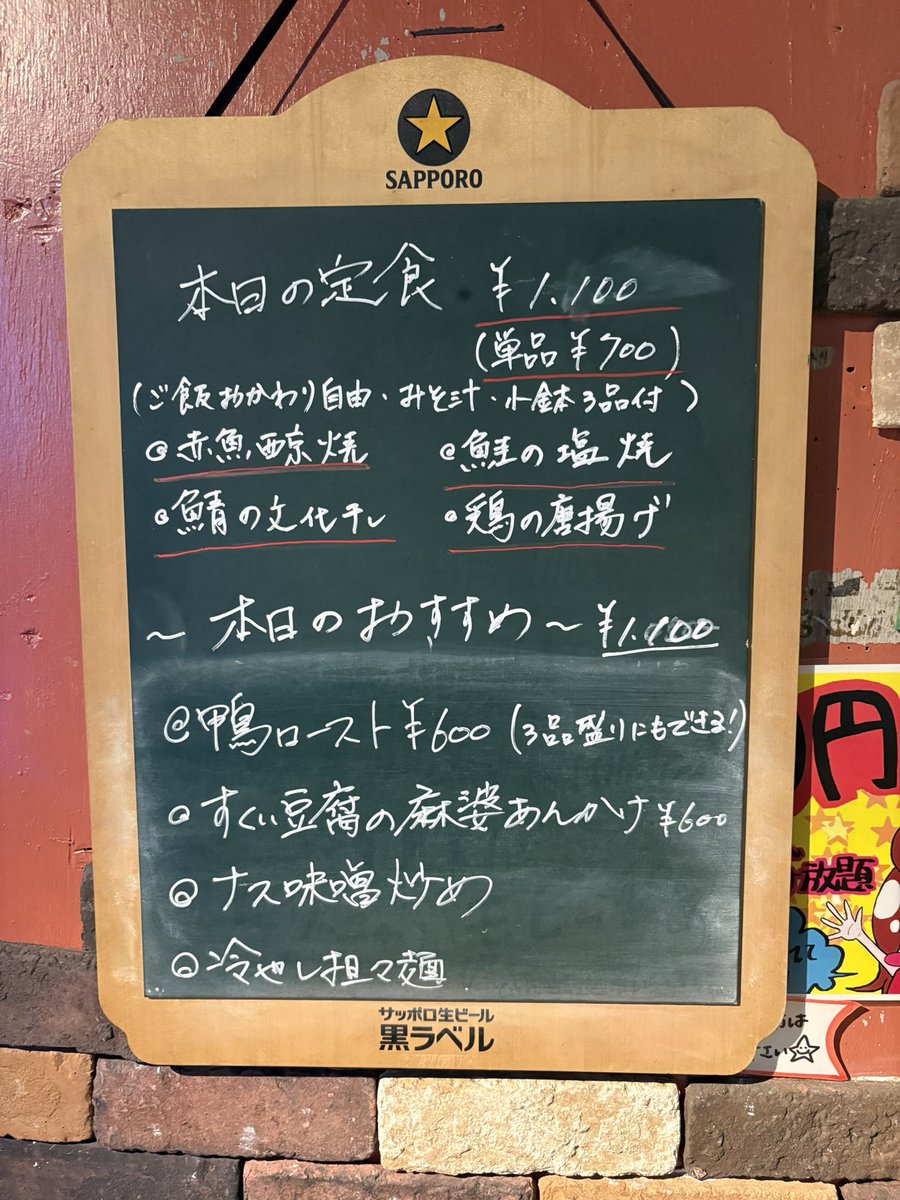 SAPPORO
本日の定食 ¥1.100
(単品¥700)
(ご飯おかわり自由・みそ汁・小鉢3品付)
◎赤魚西京焼 ◎鮭の塩焼
◎鯖の文化干し ◎鶏の唐揚げ
～本日のおすすめ～ ¥1.100
◎鴨ロースト¥600(3品盛りにもできる!)
◎すくい豆腐の麻婆あんかけ ¥600
◎ナス味噌炒め
◎冷やし担々麺
サッポロ生ビール
黒ラベル
円
放題